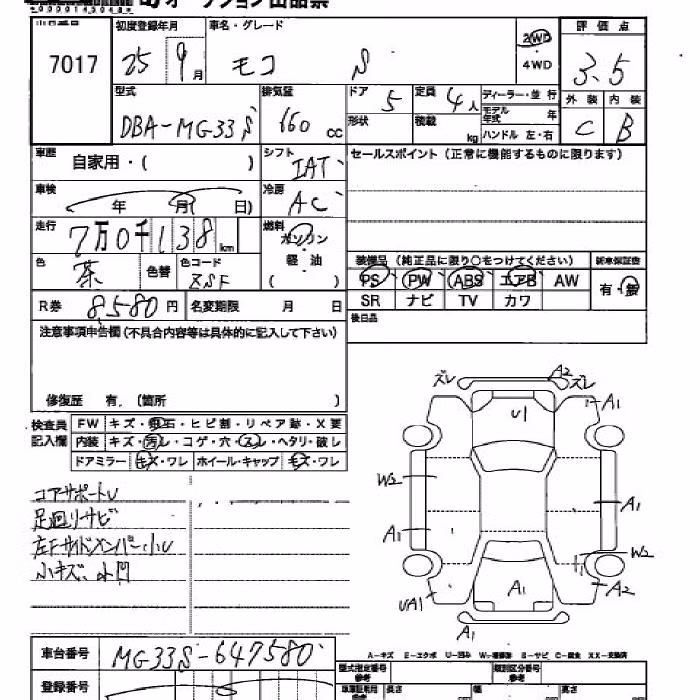 オークション出品票
出品番号 初度登録年月 車名・グレード 評価点
7017 25 9月 モコ S 2WD 4WD 3.5
型式 排気量 ドア 定員 ディーラー・並行 外装 内装
DBA-MG33S 660 cc 5 4人 モデル年式 年 C B
形状 積載 kg ハンドル 左・右
車歴 自家用・( ) シフト IAT セールスポイント(正常に機能するものに限ります)
車検 年 月( 日) 冷房 AC
走行 7万0千138km 燃料 ガソリン
軽油
( )
色 茶 色替 色コード XSF
装備品(純正品に限り○をつけてください) 新車保証書
PS PW ABS エアB AW 有・無
SR ナビ TV カワ
R券 8580円 名変期限 月 日 後日品
注意事項申告欄(不具合内容等は具体的に記入して下さい)
修復歴 有.(箇所 )
検査員記入欄 FW キズ・飛石・ヒビ割・リペア跡・X要
内装 キズ・汚レ・コゲ・穴・スレ・ヘタリ・破レ
ドアミラー キズ・ワレ ホイール・キャップ キズ・ワレ
コアサポートU
足廻りサビ
左Fサイドメンバー小U
小キズ、小凹
ズレ A2 ズレ
U1 A1
W2
A1 A1
W2
A1 A2
UA1
A1
A-キズ E-エクボ U-凹み W-補修跡 S-サビ C-腐食 XX-交換済
車台番号 MG33S-647580
型式指定番号 参考 類別区分番号 参考
登録番号 長さ 幅 高さ